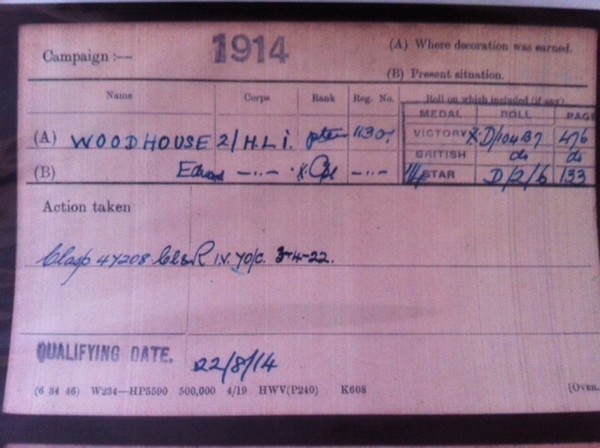 Campaign :— 1914 (A) Where decoration was earned.
(B) Present situation.
Name Corps Rank Reg. No. Roll on which included (if any)
MEDAL ROLL PAGE
(A) WOODHOUSE 2/H.L.I. Pte VICTORY D/104B7 476
(B) Edward —..— Cpl —..— BRITISH do do
14 STAR D/2/6 133
Action taken
Clasp 47208 I.V. 3-4-22.
QUALIFYING DATE. 22/8/14
(6 34 46) W234—HP5590 500,000 4/19 HWV(P240) K608 [OVER.